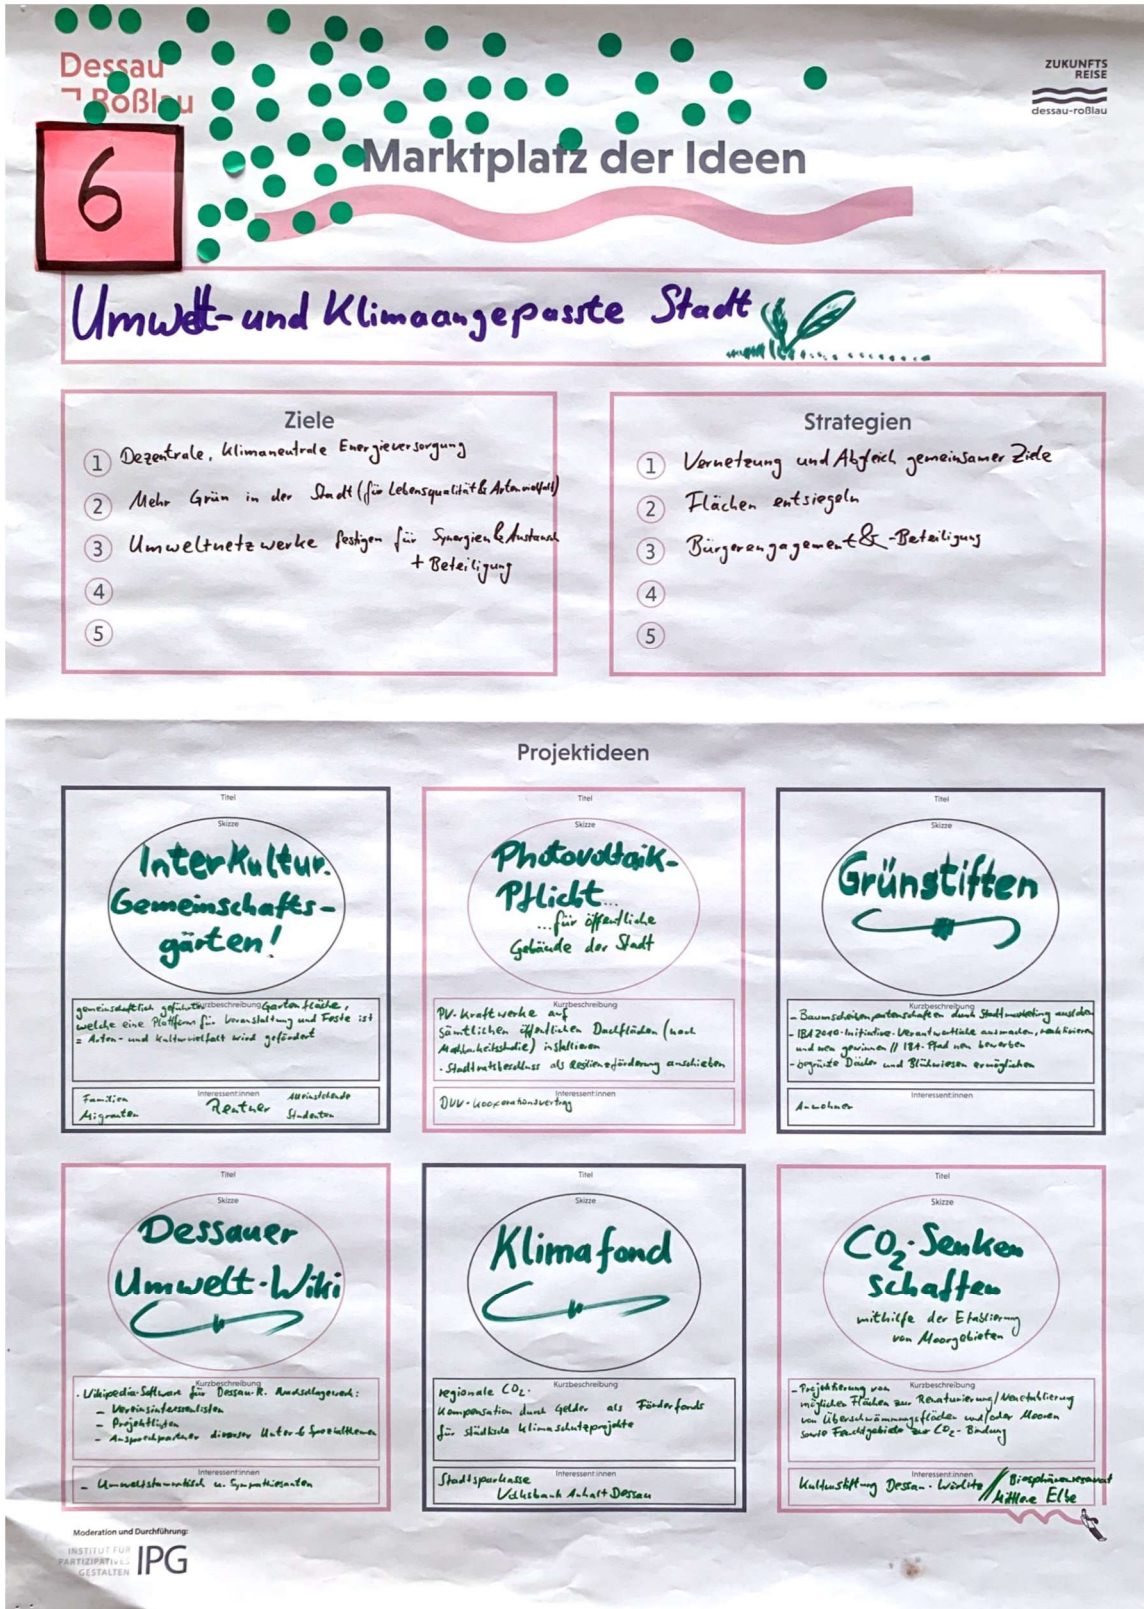 Dessau
Roßlau
ZUKUNFTS
REISE
dessau-roßlau
6
Marktplatz der Ideen
Umwelt- und Klimaangepasste Stadt
Ziele
1 Dezentrale, klimaneutrale Energieversorgung
2 Mehr Grün in der Stadt (für Lebensqualität & Artenvielfalt)
3 Umweltnetzwerke festigen für Synergien & Austausch
+ Beteiligung
4
5
Strategien
1 Vernetzung und Abgleich gemeinsamer Ziele
2 Flächen entsiegeln
3 Bürgerengagement & -Beteiligung
4
5
Projektideen
Titel
Skizze
Interkultur.
Gemeinschafts-
gärten!
Kurzbeschreibung
gemeinschaftlich geführte Gartenfläche,
welche eine Plattform für Veranstaltung und Feste ist
= Arten- und Kulturvielfalt wird gefördert
Interessent:innen
Familien Rentner Alleinstehende
Migranten Studenten
Titel
Skizze
Photovoltaik-
Pflicht...
...für öffentliche
Gebäude der Stadt
Kurzbeschreibung
PV-Kraftwerke auf
sämtlichen öffentlichen Dachflächen (nach
Machbarkeitsstudie) installieren
- Stadtratsbeschluss als Resilienzförderung anschieben
Interessent:innen
DVV-Kooperationsvertrag
Titel
Skizze
Grünstiften
Kurzbeschreibung
- Baumscheibenpatenschaften durch Stadtmarketing ausloben
- IBA 2010-Initiative-Verantwortliche ausmachen, reaktivieren
und neu gewinnen // IBA-Pfad neu bewerben
- begrünte Dächer und Blühwiesen ermöglichen
Interessent:innen
Anwohner
Titel
Skizze
Dessauer
Umwelt-Wiki
Kurzbeschreibung
- Wikipedia-Software für Dessau-R. Nachschlagewerk:
- Vereinsinteressenlisten
- Projektlisten
- Ansprechpartner diverser Unter- & Spezialthemen
Interessent:innen
- Umweltstammtisch u. Sympathisanten
Titel
Skizze
Klimafond
Kurzbeschreibung
regionale CO2-
Kompensation durch Gelder als Förderfonds
für städtische Klimaschutzprojekte
Interessent:innen
Stadtsparkasse
Volksbank Anhalt Dessau
Titel
Skizze
CO2-Senken
schaffen
mithilfe der Etablierung
von Moorgebieten
Kurzbeschreibung
- Projektierung von
möglichen Flächen zur Renaturierung/Neuetablierung
von Überschwämmungsflächen und/oder Mooren
sowie Feuchtgebiete zur CO2-Bindung
Interessent:innen
Kulturstiftung Dessau-Wörlitz // Biosphärenreservat
Mittlere Elbe
Moderation und Durchführung:
INSTITUT FÜR
PARTIZIPATIVES
GESTALTEN
IPG